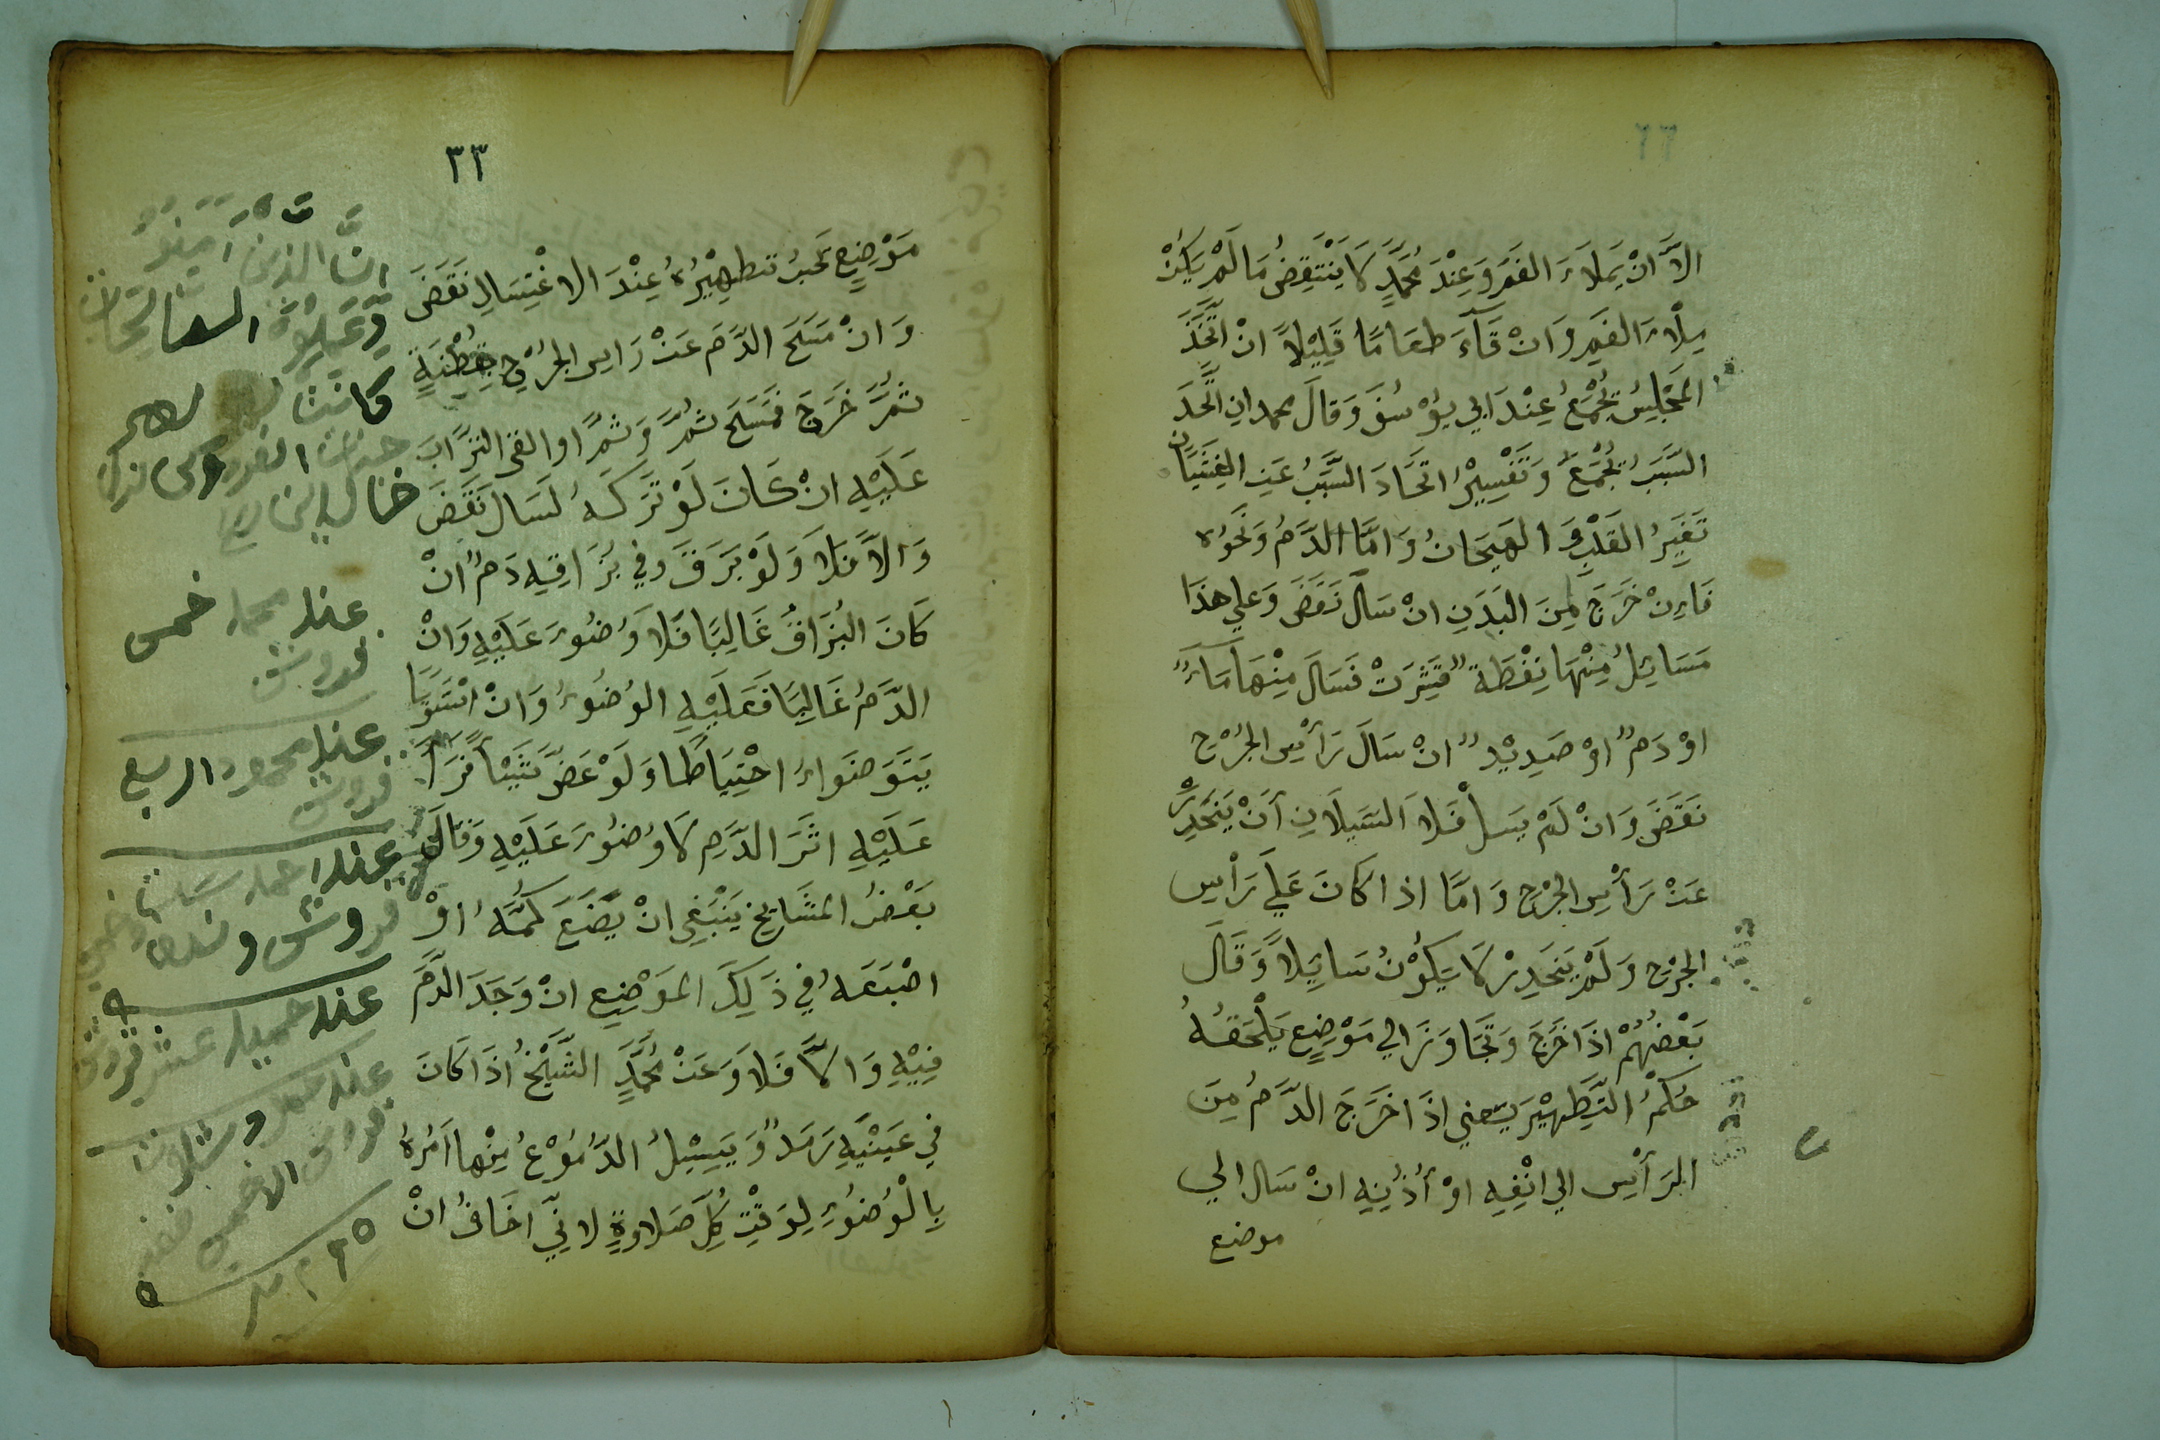 الاَّ انْ يَملاَءَ الفَمَ وَعِنْدَ مُحَمَّدٍ لَا يَنْتَقِضُ مَا لَمْ يَكُنْ
مِلْاءَ الفَمِ وَانْ قَآءَ طَعَامًا قَلِيْلاً انْ اتَّحَذَ
المَجْلِسُ يُجْمَعُ عِنْدَ ابي يُوْسُفَ وَقالَ محمد انِ اتَّحَدَ
السَّبَبُ يُجْمَعُ وَتَفْسِيْرُ اتَّحَادَ السَّبَبُ عَنِ الغِثَيَانِ
تَغَيِرُ القَلْبِ وَ الهَيَجَانُ وَامَّا الدَّمُ وَنَحَوُه
فَاءِنْ خَرَجَ مِنَ البَدَنِ انْ سَالَ نَقَضَ وَعلي هذَا
مَسَائِلُ مِنْهَا نِفْطَة قَشِرَتْ فَسَالَ مِنْهَا مَآءٌ
اوْ دَمٌ اوْ صَدِيْدٌ انْ سَالَ رَأسِ الجُرْحِ
نَقَضَ وَانْ لَمْ يَسلْ فَلاَ السَيَلَانِ آنْ يَنْحَدِرْ
عَنْ رَأسِ الجُرْحِ وَامَّا اذا كَانَ عَلَي رَأسِ
الجُرْحِ وَلَمْ يَنْحَدِرْ لَا يَكُوْنُ سَايَلاً وَقَالَ
بَعْضُهُمْ اذَا خَرَجَ وَتَجَاوَزَ الي مَوْضِعٍ يَلْحَقُهُ
حُكْمُ التَّطِهِيْرَ يَعني اذَا خَرَجَ الدَّمُ مِنَ
الرَأسِ الي انْفِهِ اوْ أُذُنِهِ انْ سَال الي
موضع
٣٣
مَوْضِعٍ يَجبُ تطهِيْرُهُ عِنْدَ الاغْتِسَالِ نَقَضَ
وَانْ مَسَحَ الدَّمَ عَنْ رَاسِ الجُرْحِ بِقِطْنَةٍ
ثمَّ خَرَجَ فَمَسَحَ ثمَّ وَثمَّ او القي التُّرَابَ
عَلَيْهِ انْ كَانَ لَوْ تَرَكَهُ لَسَالَ نَقَضَ
وَالاَّ فَلاَ وَلَوْ بَزَقَ وَفي بُزَاقِهِ دَمٌ انْ
كَانَ البُزَاقُ غَالِبًا فَلا وَضُوءَ عَلَيْهِ وَانْ
الدَّمُ غَالِبًا فَعَلَيْهِ الوُضُوءُ وَانْ اسْتَوَيَا
يَتَوَضَوَاءُ احْتِيَاطًا وَلَوْ عَضَّ شَيْئًا فَرَأَ
عَلَيْهِ اثَرَ الدَّمِ لَا وُضُوءَ عَلَيْهِ وَقَالَ
بَعْضُ المَشَايِخِ يَنْبَغِي انْ يَضَعَ كُمَّهُ اوْ
اصْبَعَهُ في ذَلِكَ المَوْضِعِ انْ وَجَدَ الدَّمَ
فِيْهِ وَالاَّ فَلاَ وَعَنْ مُحَمَّدٍ الشَّيْخُ اذَا كَانَ
في عَيْنَيْهِ رَمَدٌ وَيَسِيْلُ الدُّمُوْعُ مِنْهَا اَمُرُهُ
بِالْوُضُوءِ لِوَقْتِ كُلِّ صَلاوةٍ لانِّي اخَافُ انْ
انَّ الذين آمَنُوْ
وَعَمِلُوْا الصالِحَاتِ
كانت لهم
جنات الفردوس نزلا
خالدين
عند محمد خمس
قروش
عند محمود اربع
قروش
عند احمد
قروش و
عند حميد عشر قروش
عند